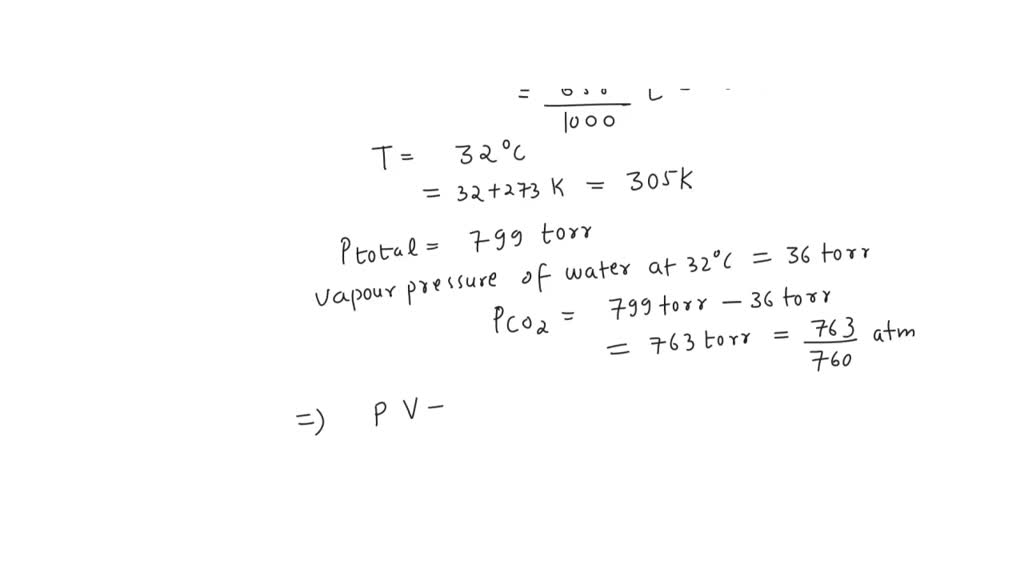 =
1000
T = 32°C
= 32+273 K = 305K
Ptotal = 799 torr
Vapour pressure of water at 32°C = 36 torr
PCO2 = 799 torr - 36 torr
= 763 torr = 763/760 atm
=) P V -